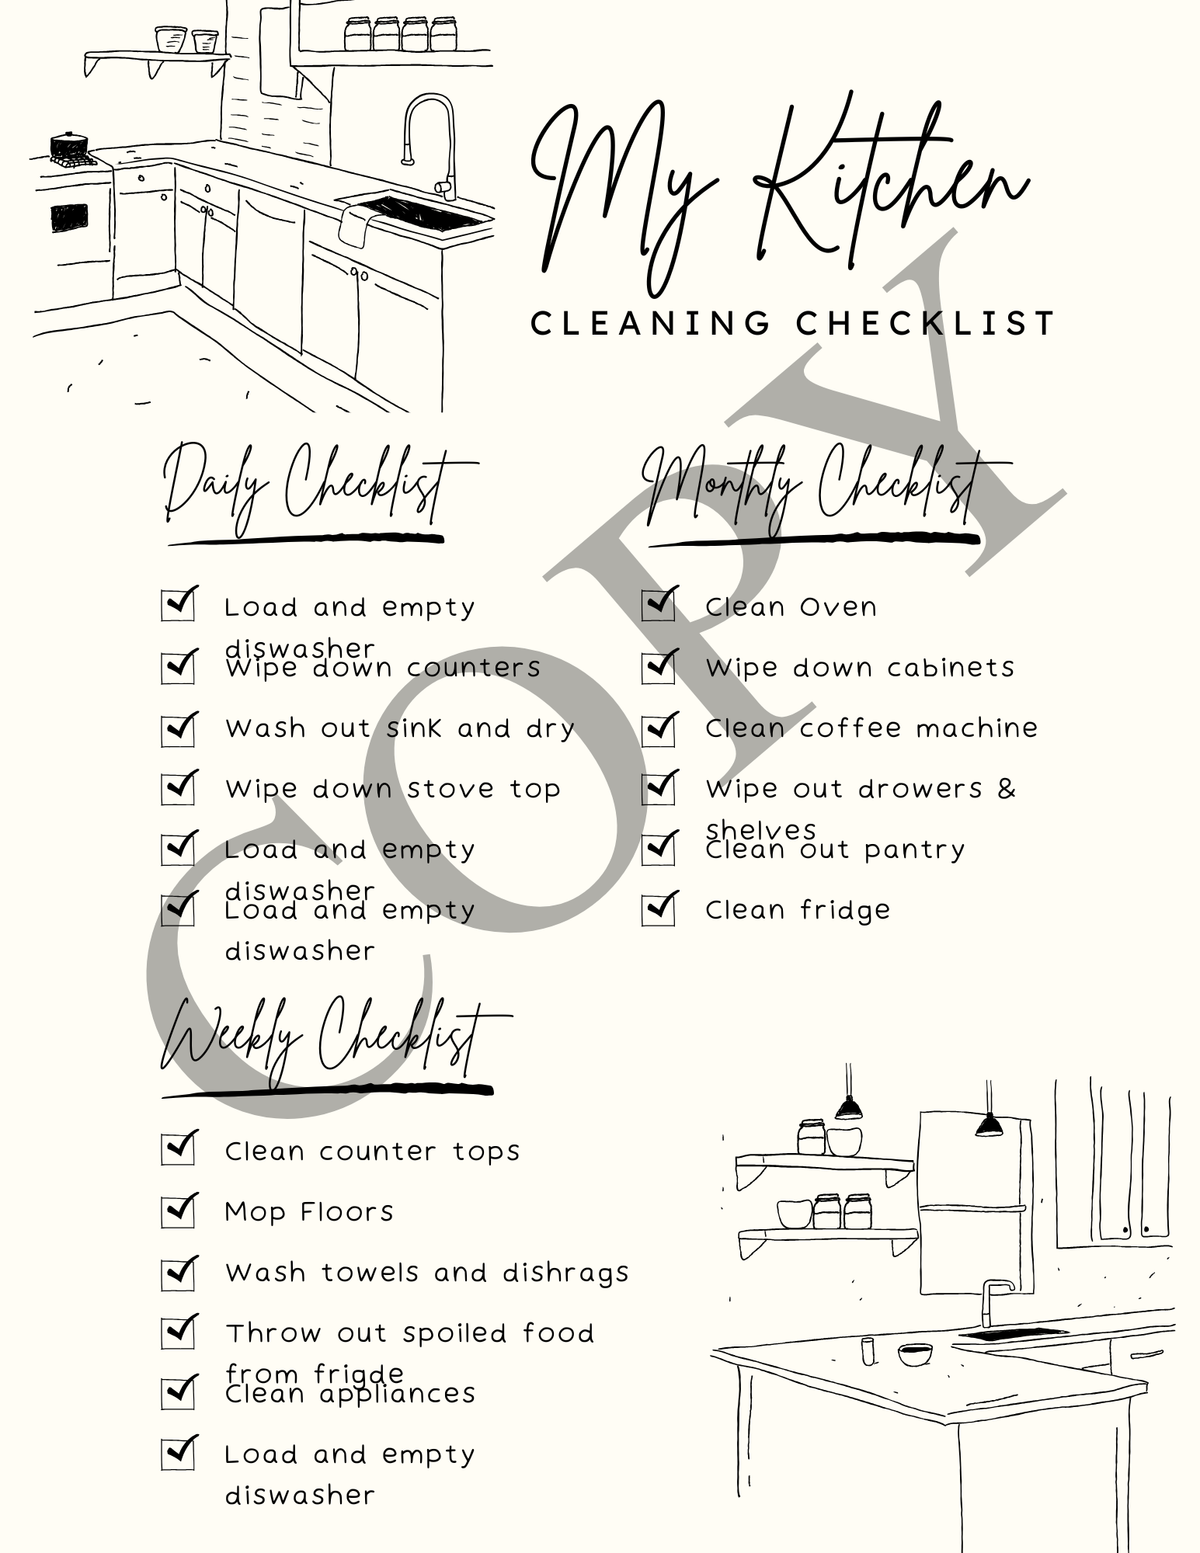 My Kitchen
CLEANING CHECKLIST
Daily Checklist
Load and empty
diswasher
Wipe down counters
Wash out sink and dry
Wipe down stove top
Load and empty
diswasher
Load and empty
diswasher
Monthly Checklist
Clean Oven
Wipe down cabinets
Clean coffee machine
Wipe out drowers &
shelves
Clean out pantry
Clean fridge
Weekly Checklist
Clean counter tops
Mop Floors
Wash towels and dishrags
Throw out spoiled food
from frigde
Clean appliances
Load and empty
diswasher
COPY